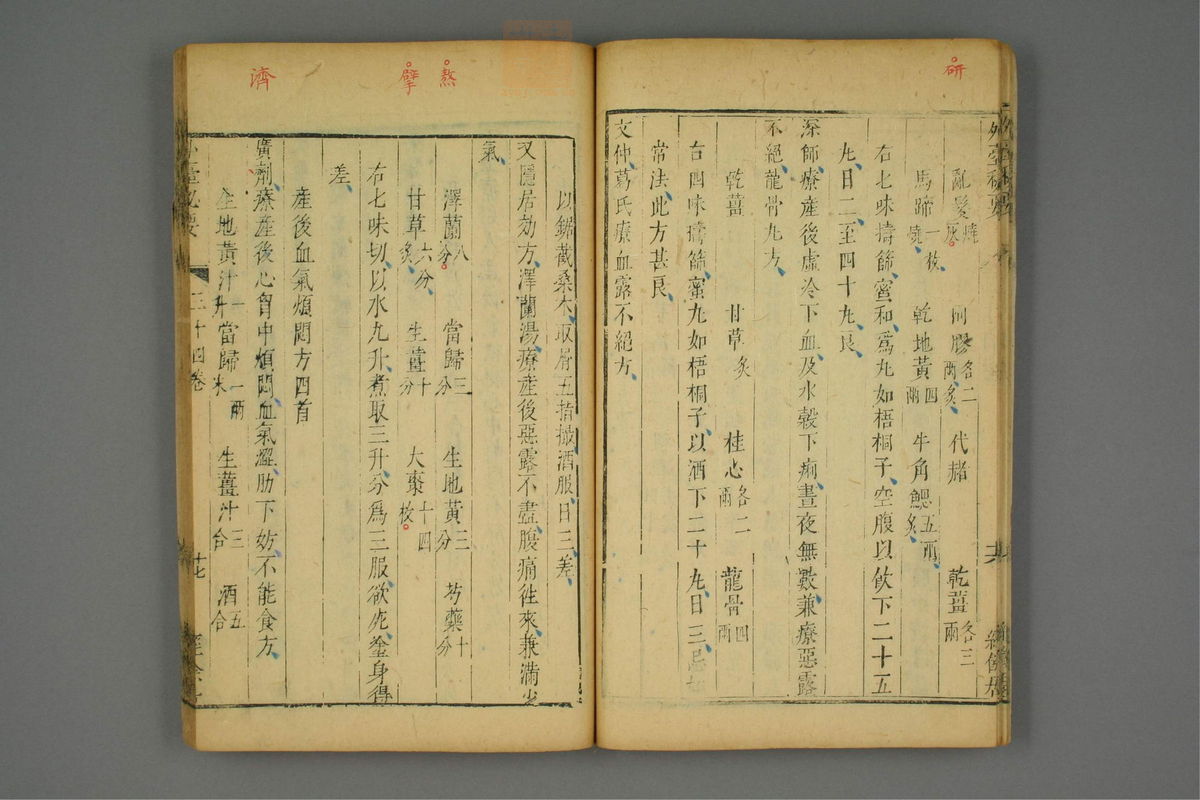 研
外臺祕要
亂髮燒灰 阿膠各二兩炙 代赭 乾薑各三兩
馬蹄一枚燒 乾地黃四兩 牛角䚡五兩炙
右七味擣篩蜜和爲丸如梧桐子空腹以飲下二十五
丸日二至四十丸良
深師療產後虛冷下血及水穀下痢晝夜無數兼療惡露
不絕龍骨丸方
乾薑 甘草炙 桂心各二兩 龍骨四兩
右四味擣篩蜜丸如梧桐子以酒下二十丸日三忌如
常法此方甚良
文仲葛氏療血露不絕方
熬
擘
濟
以鋸截桑木取屑五指撮酒服日三差
又隱居効方澤蘭湯療產後惡露不盡腹痛往來兼滿少
氣
澤蘭八分 當歸三分 生地黃三分 芍藥十分
甘草六分炙 生薑十分 大棗十四枚
右七味切以水九升煮取三升分爲三服欲死塗身得
差
產後血氣煩悶方四首
廣劑療產後心胷中煩悶血氣澀肋下妨不能食方
生地黃汁一升 當歸一兩末 生薑汁三合 酒五合
三十四卷 十七